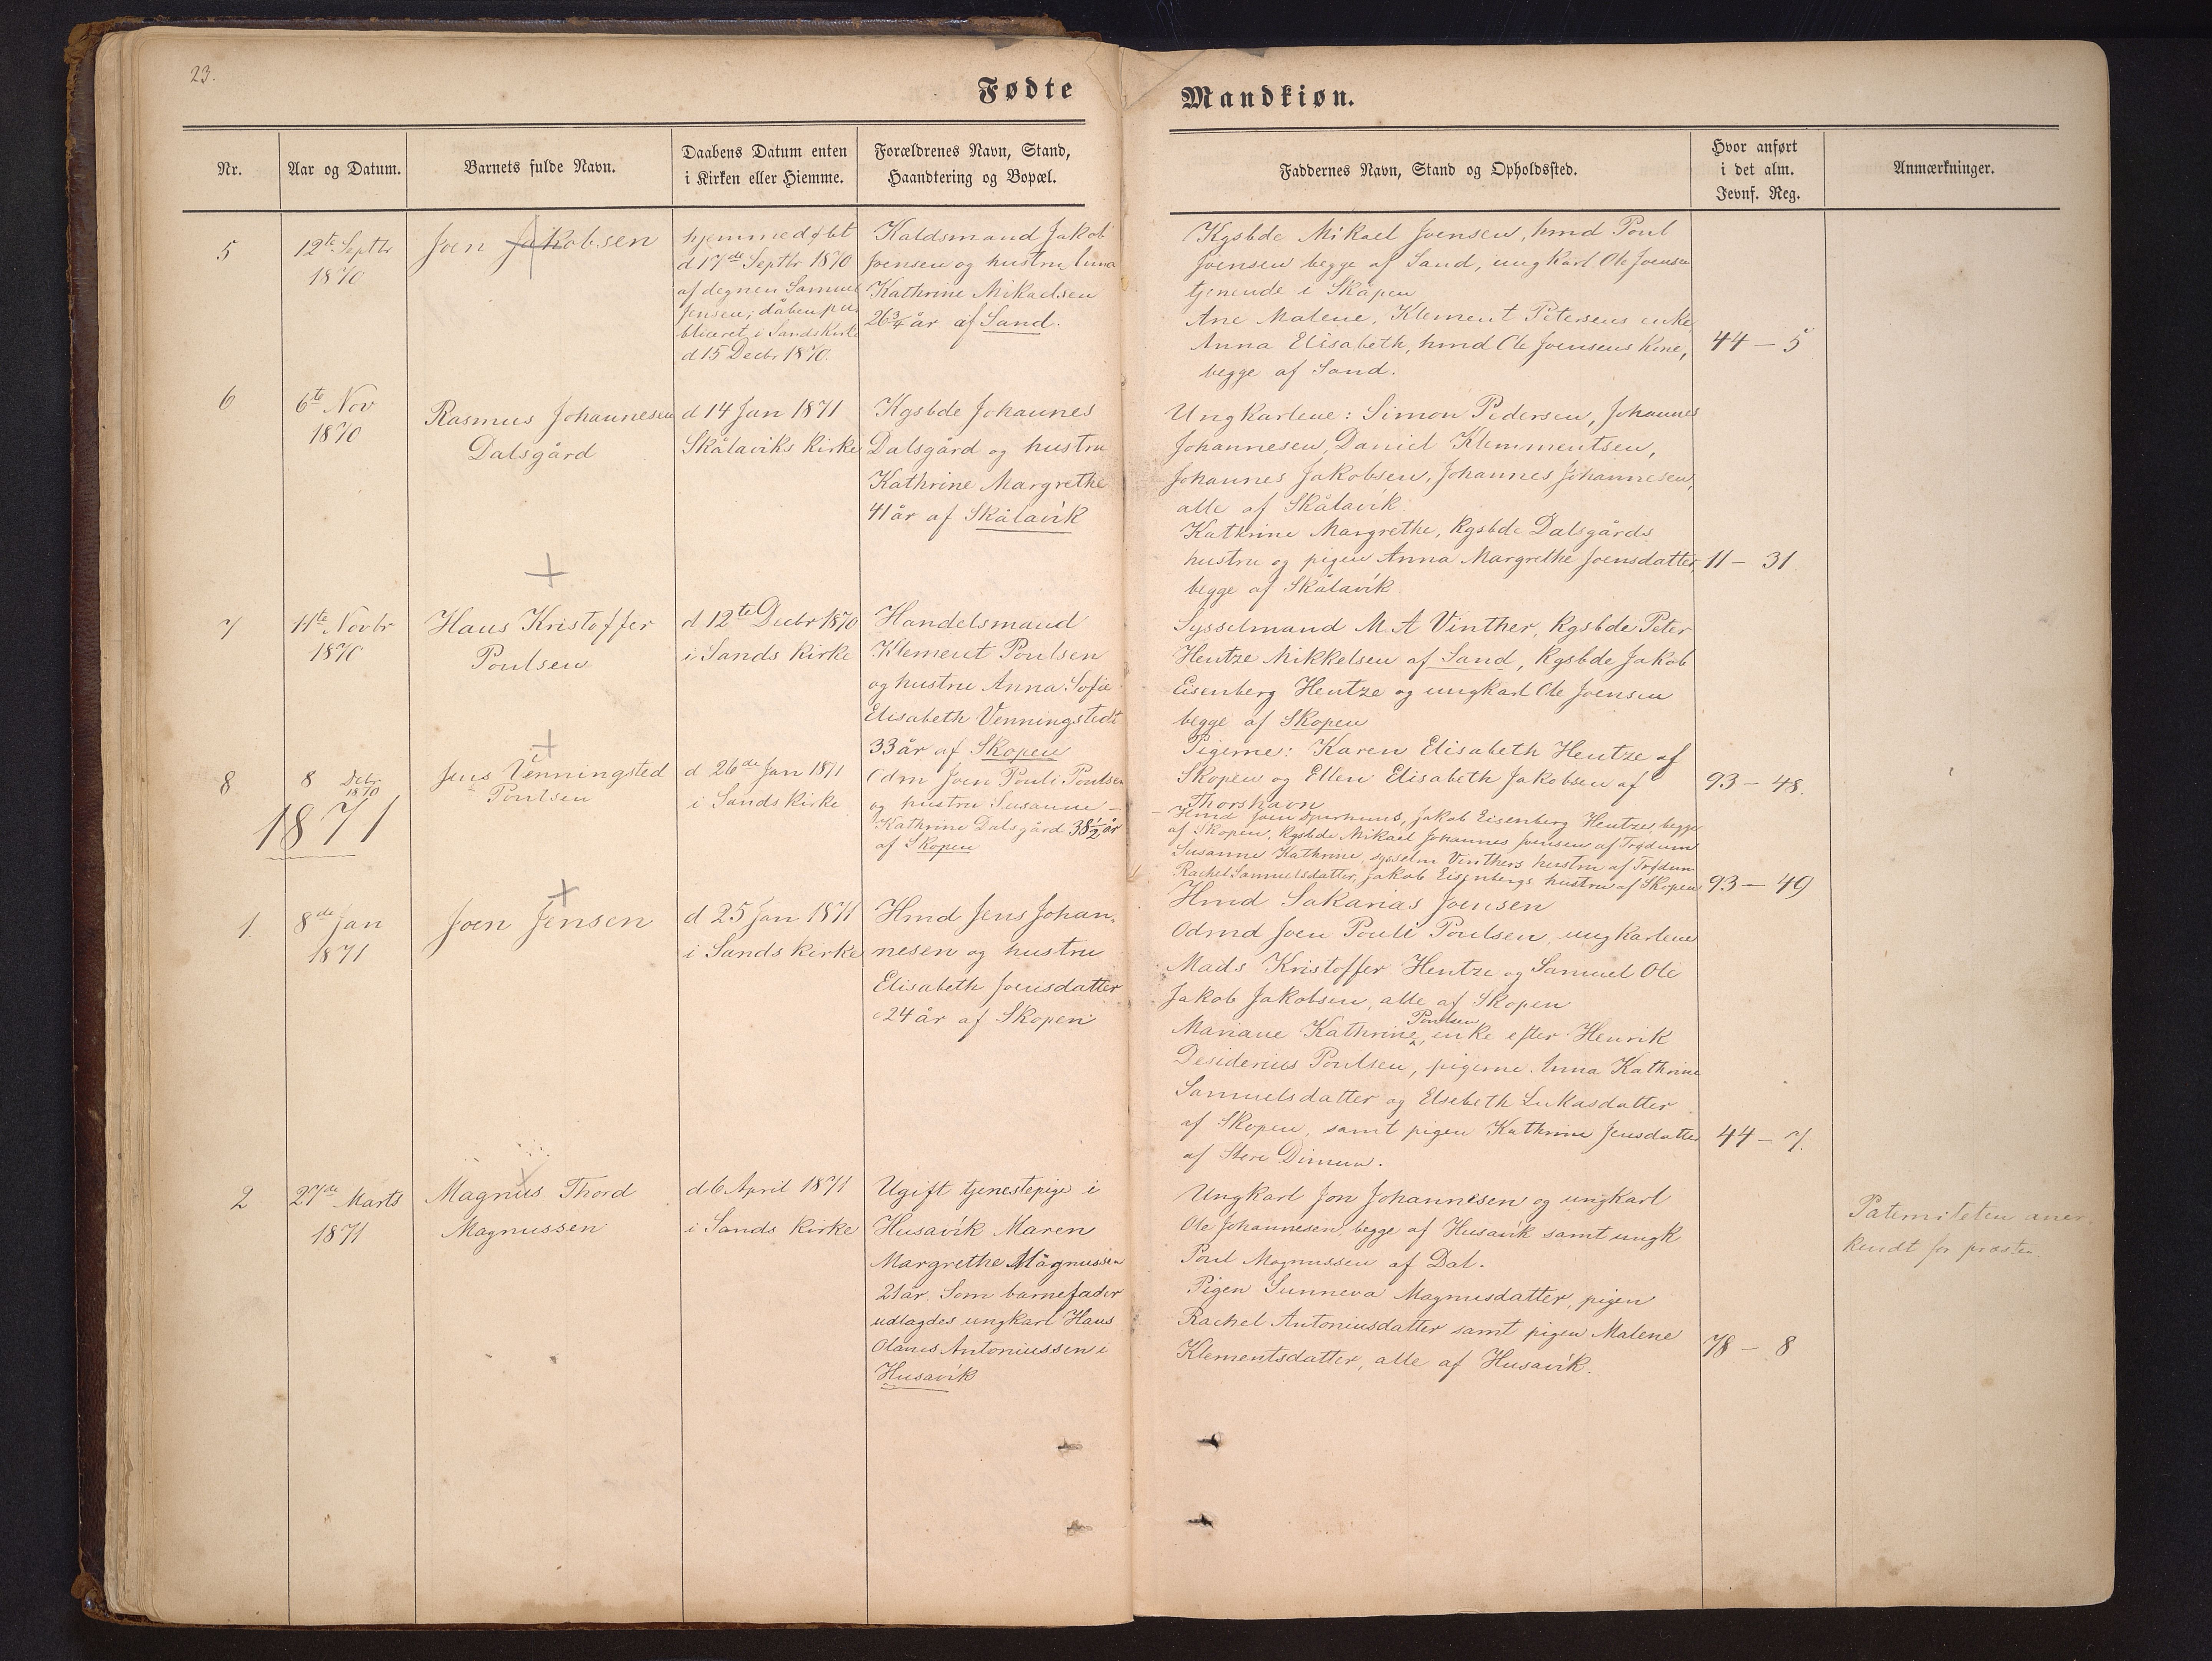 23.
Fødte
Mandkiøn.
Nr.
Aar og Datum.
Barnets fulde Navn.
Daabens Datum enten
i Kirken eller Hiemme.
Forældrenes Navn, Stand,
Haandtering og Bopæl.
Faddernes Navn, Stand og Opholdssted.
Hvor anført
i det alm.
Jevnf. Reg.
Anmærkninger.
5
12te Septbr
1870
Joen Jakobsen
hjemmedøbt
d 17de Septbr 1870
af degnen Samuel
Jensen; dåben pu-
bliceret i Sands Kirke
d 15 Decbr 1870.
Kaldsmand Jakob
Joensen og hustru Anna
Kathrine Mikaelsen
26 3/4 år af Sand.
Kgsbde Mikael Joensen, hmd Poul
Joensen begge af Sand, ungkarl Ole Joensen
tjenende i Skåpen
Ane Malene, Klement Petersens enke
Anna Elisabeth, hmd Ole Joensens kone,
begge af Sand.
44 – 5
6
6te Nov
1870
Rasmus Johannesen
Dalsgård
d 14 Jan 1871
Skålaviks Kirke
Kgsbde Johannes
Dalsgård og hustru
Kathrine Margrethe
41 år af Skålavík
Ungkarlene: Simon Pedersen, Johannes
Johannesen, Daniel Klemmentsen,
Johannes Jakobsen, Johannes Johannesen,
alle af Skålavík
Kathrine Margrethe, kgsbde Dalsgårds
hustru og pigen Anna Margrethe Joensdatter,
begge af Skålavík
11 – 31.
7
11te Novbr
1870
Hans Kristoffer
Poulsen
d 12te Decbr 1870
i Sands Kirke
Handelsmand
Klement Poulsen
og hustru Anna Sofie
Elisabeth Venningstedt
33 år af Skopen
Sysselmand M. A Vinther, kgsbde Peter
Hentze Mikkelsen af Sand, kgsbde Jakob
Eisenberg Hentze og ungkarl Ole Joensen
begge af Skopen
Pigerne: Karen Elisabeth Hentze af
Skopen og Ellen Elisabeth Jakobsen af
Thorshavn
93 – 48.
8
8 Debr
1870
Jens Venningsted
Poulsen
d 26de Jan 1871
i Sands Kirke
Odm Joen Pouli Poulsen
og hustru Susanne
Kathrine Dalsgård 38½ år
af Skopen
Hmd Joen, Jakob Eisenberg Hentze, begge
af Skopen, kgsbde Mikael Johannes Joensen af Trødum
Susanne Kathrine, sysselm Vinthers hustru af Trødum
Rachel Samuelsdatter, Jakob Eisenbergs hustru af Skopen
93 – 49
1871
1.
8de Jan
1871
Joen Jensen
d 25 Jan 1871
i Sands Kirke
Hmd Jens Johan-
nesen og hustru
Elisabeth Joensdatter
24 år af Skopen
Hmd Sakarias Joensen
Odmd Joen Pouli Poulsen, ungkarlene
Mads Kristoffer Hentze og Samuel Ole
Jakob Jakobsen, alle af Skopen
Mariane Kathrine Poulsen, enke efter Henrik
Desiderius Poulsen, pigerne Anna Kathrine
Samuelsdatter og Elsebeth Lukasdatter
af Skopen, samt pigen Kathrine Jensdatter
af Store Dimun.
44 – 7.
2
27de Marts
1871
Magnus Thord
Magnussen
d 6 April 1871
i Sands Kirke
Ugift tjenestepige i
Husavík Maren
Margrethe Magnussen
21 år. Som barnefader
udlagdes ungkarl Hans
Olanis Antoniussen i
Husavík
Ungkarl Jon Johannesen og ungkarl
Ole Johannesen, begge af Husavík samt ungk
Poul Magnussen af Dal.
Pigen Sunneva Magnusdatter, pigen
Rachel Antoniusdatter samt pigen Malene
Klementsdatter, alle af Husavík.
78 – 8
Paterniteten aner-
kendt for præsten.